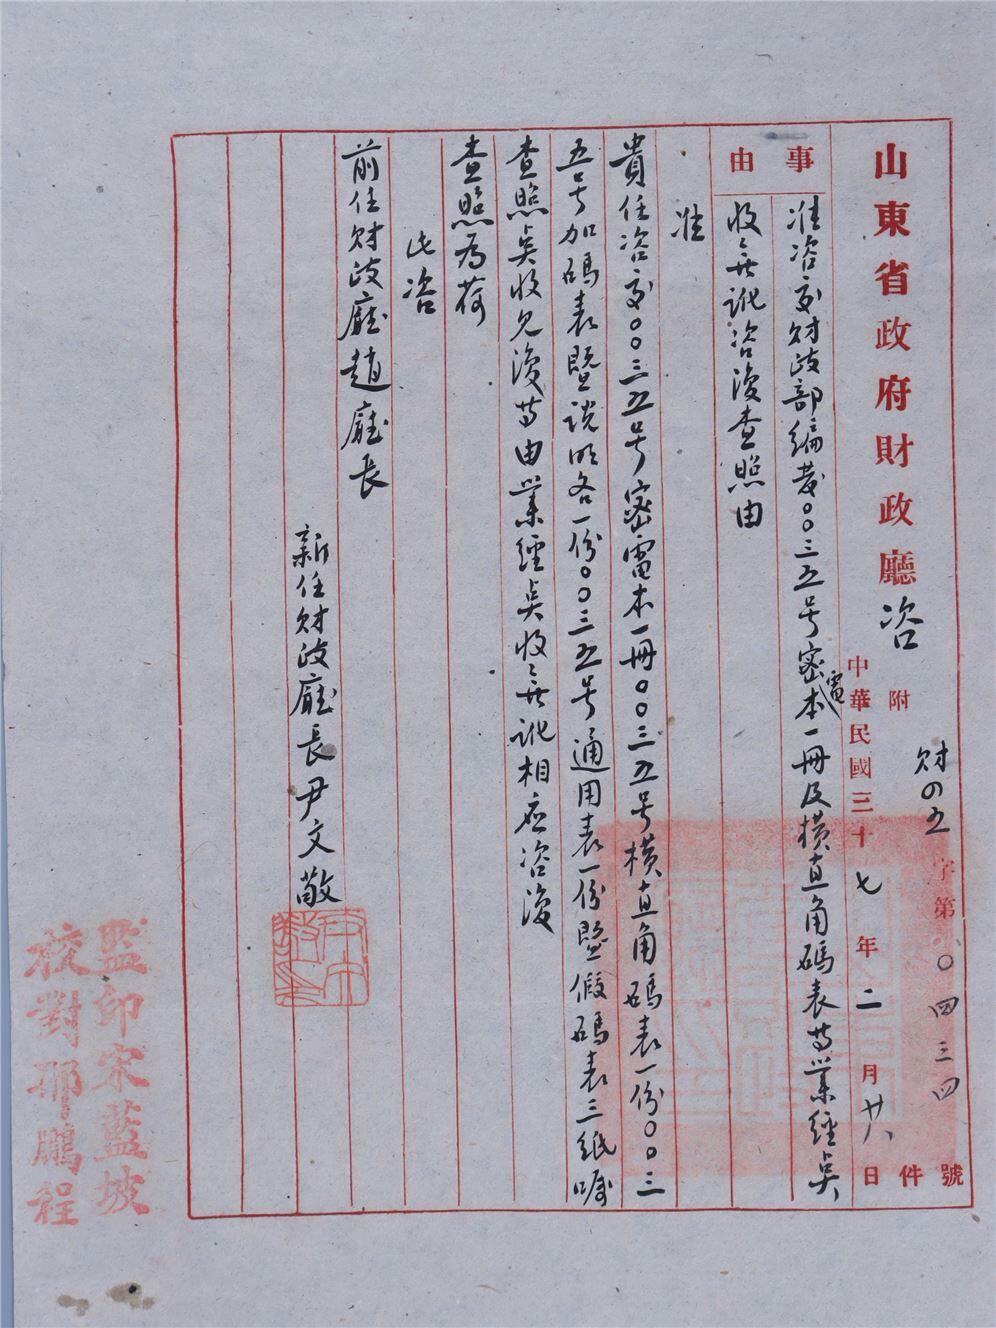 山東省政府財政廳咨
附 件
財四五字第〇四三四號
中華民國三十七年二月廿八日
事由
准咨交財政部編發〇〇三五号密電本一冊及橫直角碼表等業經点
收無訛咨復查照由
准
貴任咨交〇〇三五号密電本一冊〇〇三五号橫直角碼表一份〇〇三
五号加碼表暨説明各一份〇〇三五号通用表一份暨假碼表三紙囑
查照点收見復等由業經点收無訛相应咨復
查照為荷
此咨
前任財政廳趙廳長
新任財政廳長尹文敬
監印宋藍坡
校對邢鵬程